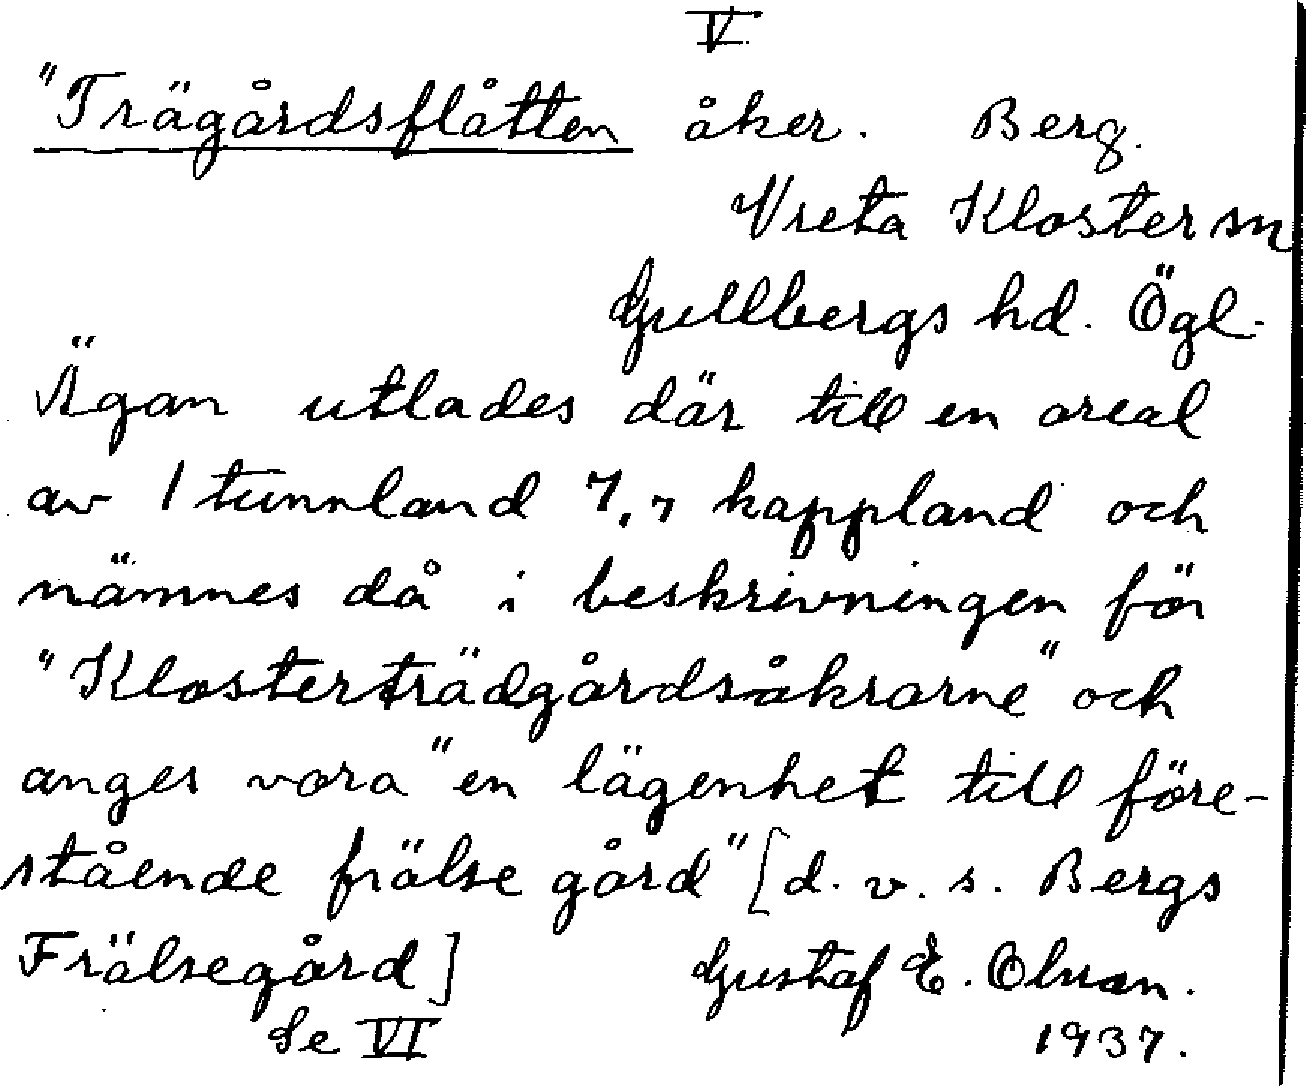 V
"Trägårdsflåtten åker. Berg.
Vreta Kloster sn
Gullbergs hd. Ögl.
Ägan utlades där till en areal
av 1 tunnland 7,7 kappland och
nämnes då i beskrivningen för
"Klosterträdgårdsåkrarne" och
anges vara "en lägenhet till före-
stående frälse gård" [d. v. s. Bergs
Frälsegård]
Gustaf E. Olsson.
Se VI
1937.